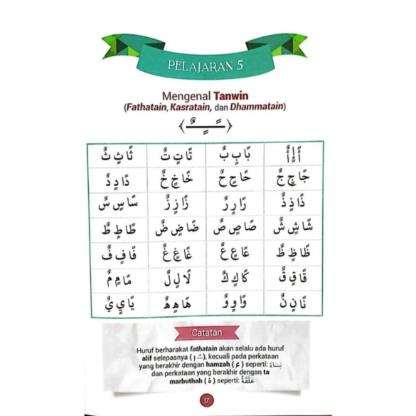 PELAJARAN 5
Mengenal Tanwin
(Fathatain, Kasratain, dan Dhammatain)
أً إٍ أٌ بًا بٍ بٌ تًا تٍ تٌ ثًا ثٍ ثٌ
جًا جٍ جٌ حًا حٍ حٌ خًا خٍ خٌ دًا دٍ دٌ
ذًا ذٍ ذٌ رًا رٍ رٌ زًا زٍ زٌ سًا سٍ سٌ
شًا شٍ شٌ صًا صٍ صٌ ضًا ضٍ ضٌ طًا طٍ طٌ
ظًا ظٍ ظٌ عًا عٍ عٌ غًا غٍ غٌ فًا فٍ فٌ
قًا قٍ قٌ كًا كٍ كٌ لًا لٍ لٌ مًا مٍ مٌ
نًا نٍ نٌ وًا وٍ وٌ هًا هٍ هٌ يًا يٍ يٌ
Catatan
Huruf berharakat fathatain akan selalu ada huruf
alif selepasnya (ـًـا), kecuali pada perkataan
yang berakhir dengan hamzah (ء) seperti: نِسَاءً
dan perkataan yang berakhir dengan ta
marbuthah (ة) seperti: عَلَقَةً
17